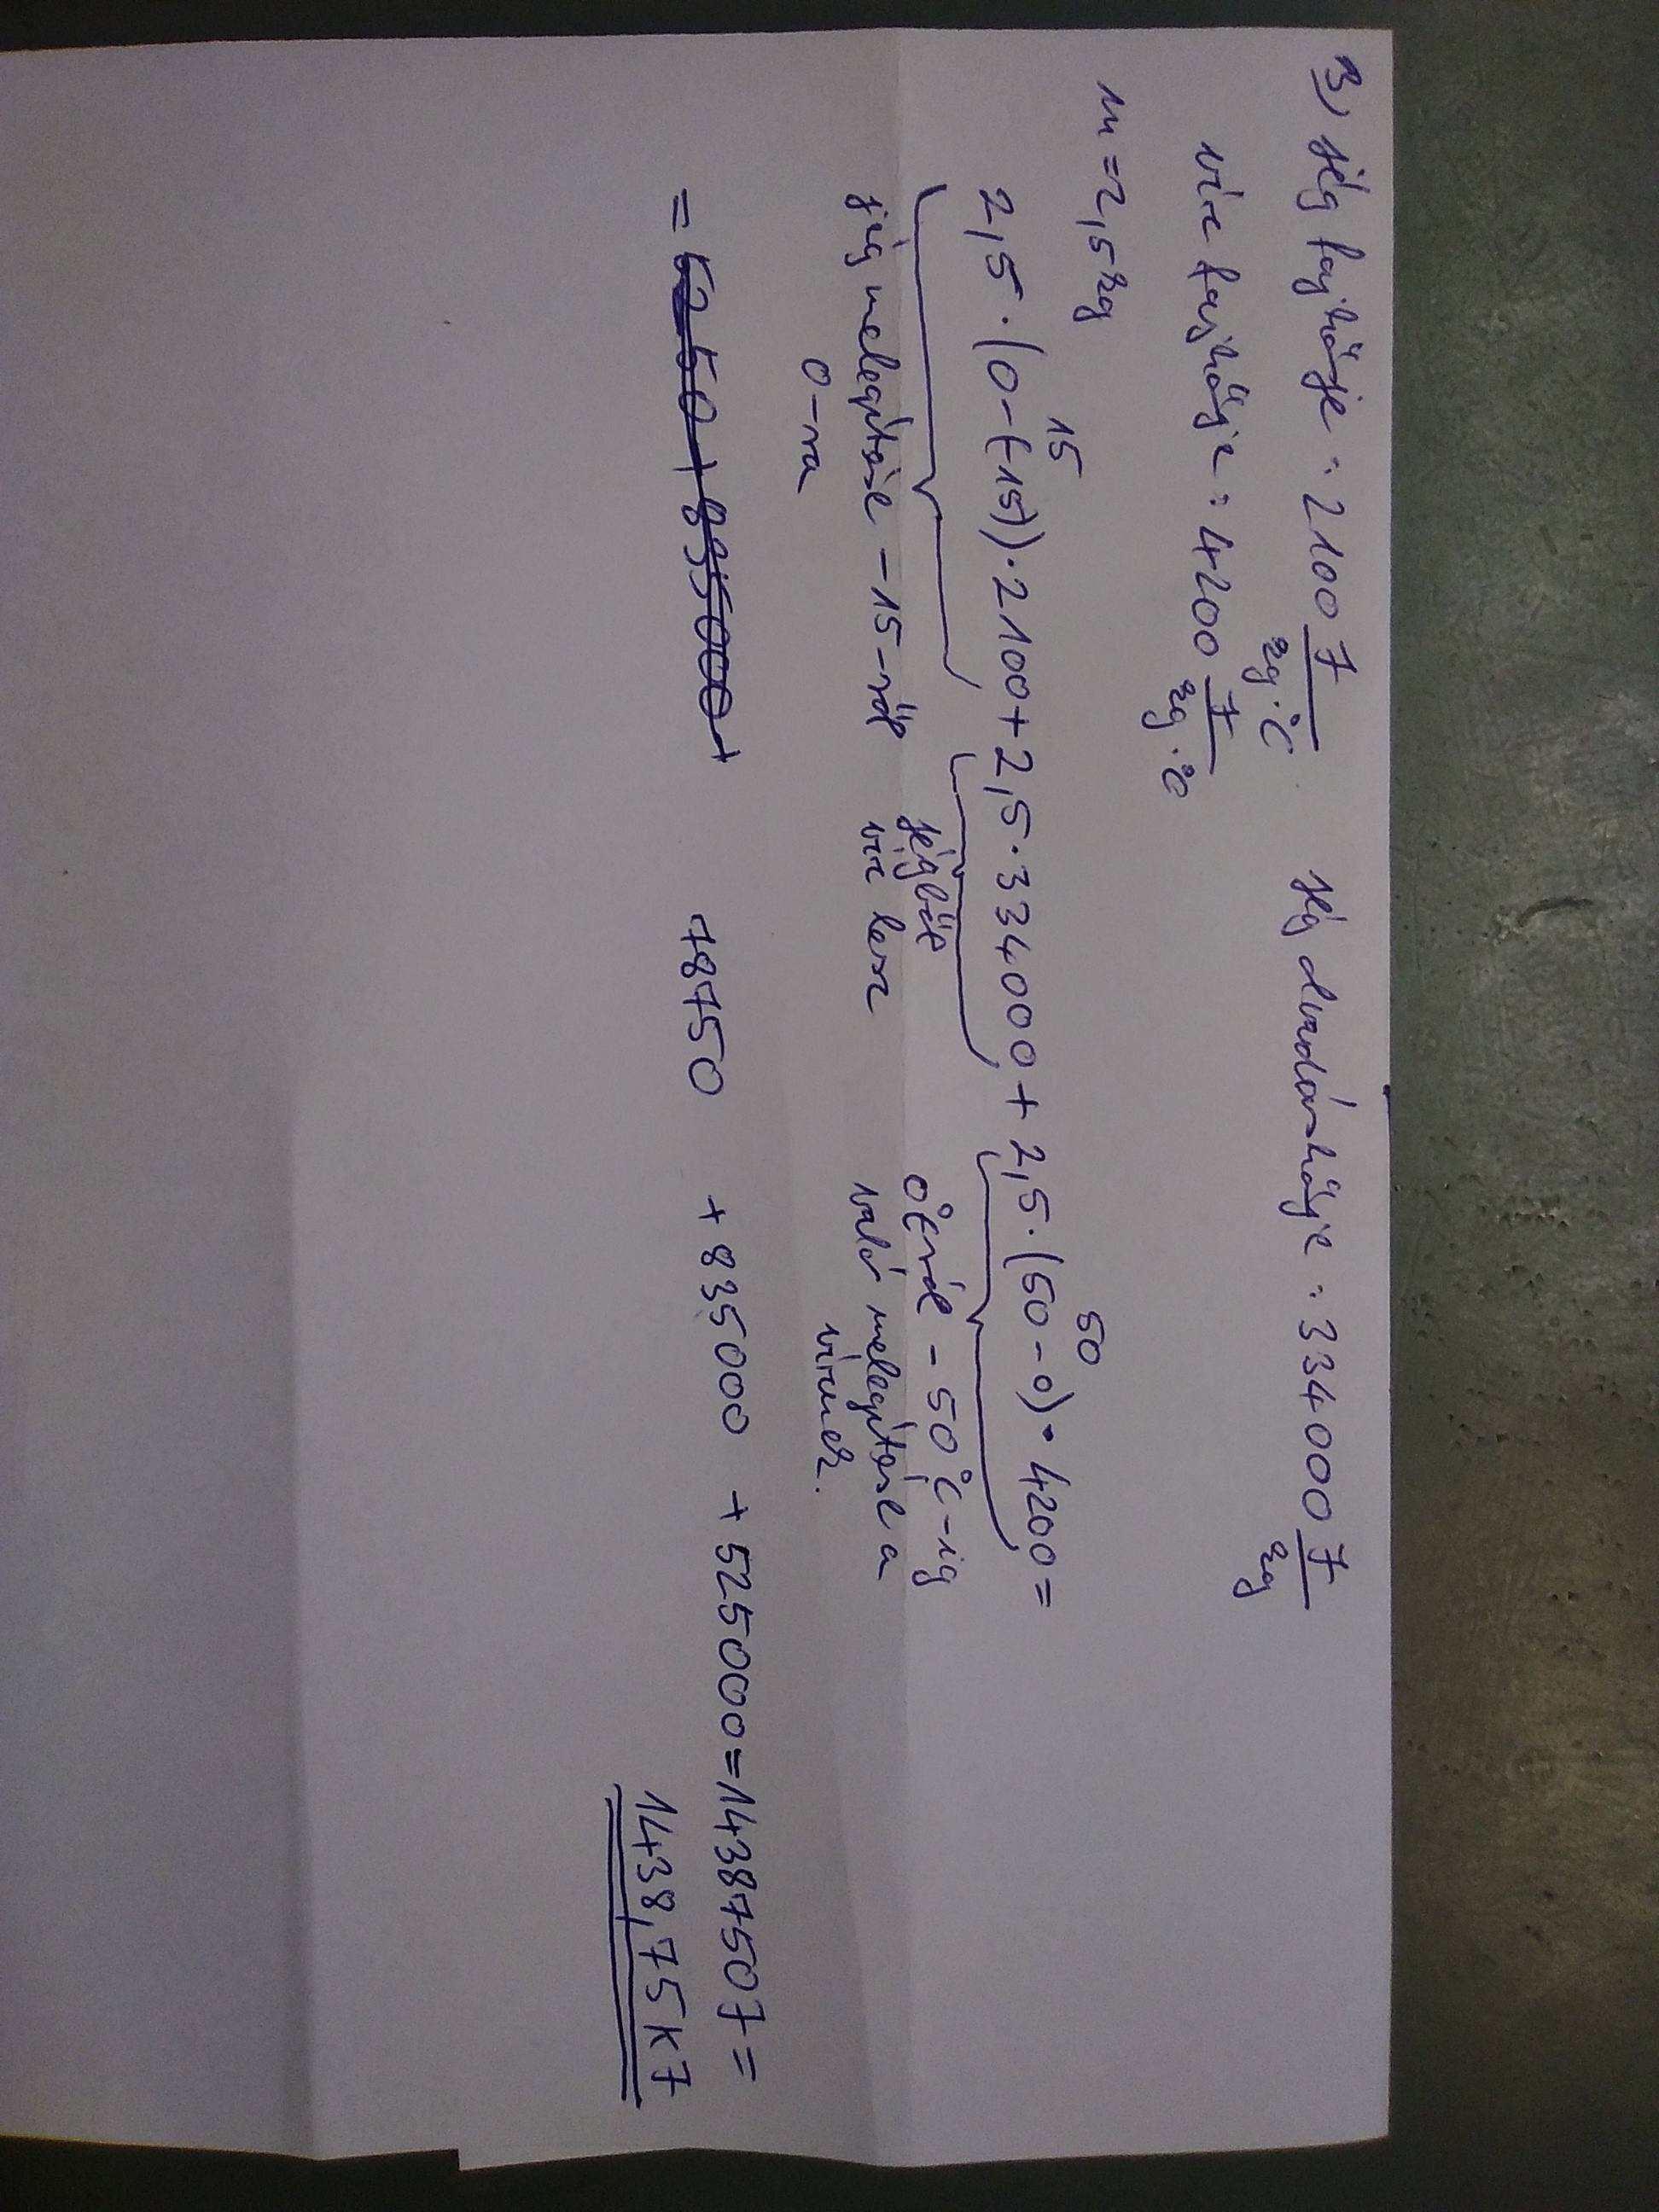 3) Jég fajhője: 2100 J/kg·°C Jég olvadáshője: 334000 J/kg
víz fajhője: 4200 J/kg·°C
m = 2,5 kg
15 50
2,5·(0-(-15))·2100+2,5·334000+2,5·(50-0)·4200=
jég melegítése -15-ről jégből 0°C-ról - 50°C-ig
0-ra víz lesz való melegítése a
víznek.
= 52 50 + 835000+ 78750 + 835000 + 525000 = 1438750 J =
1438,75 kJ